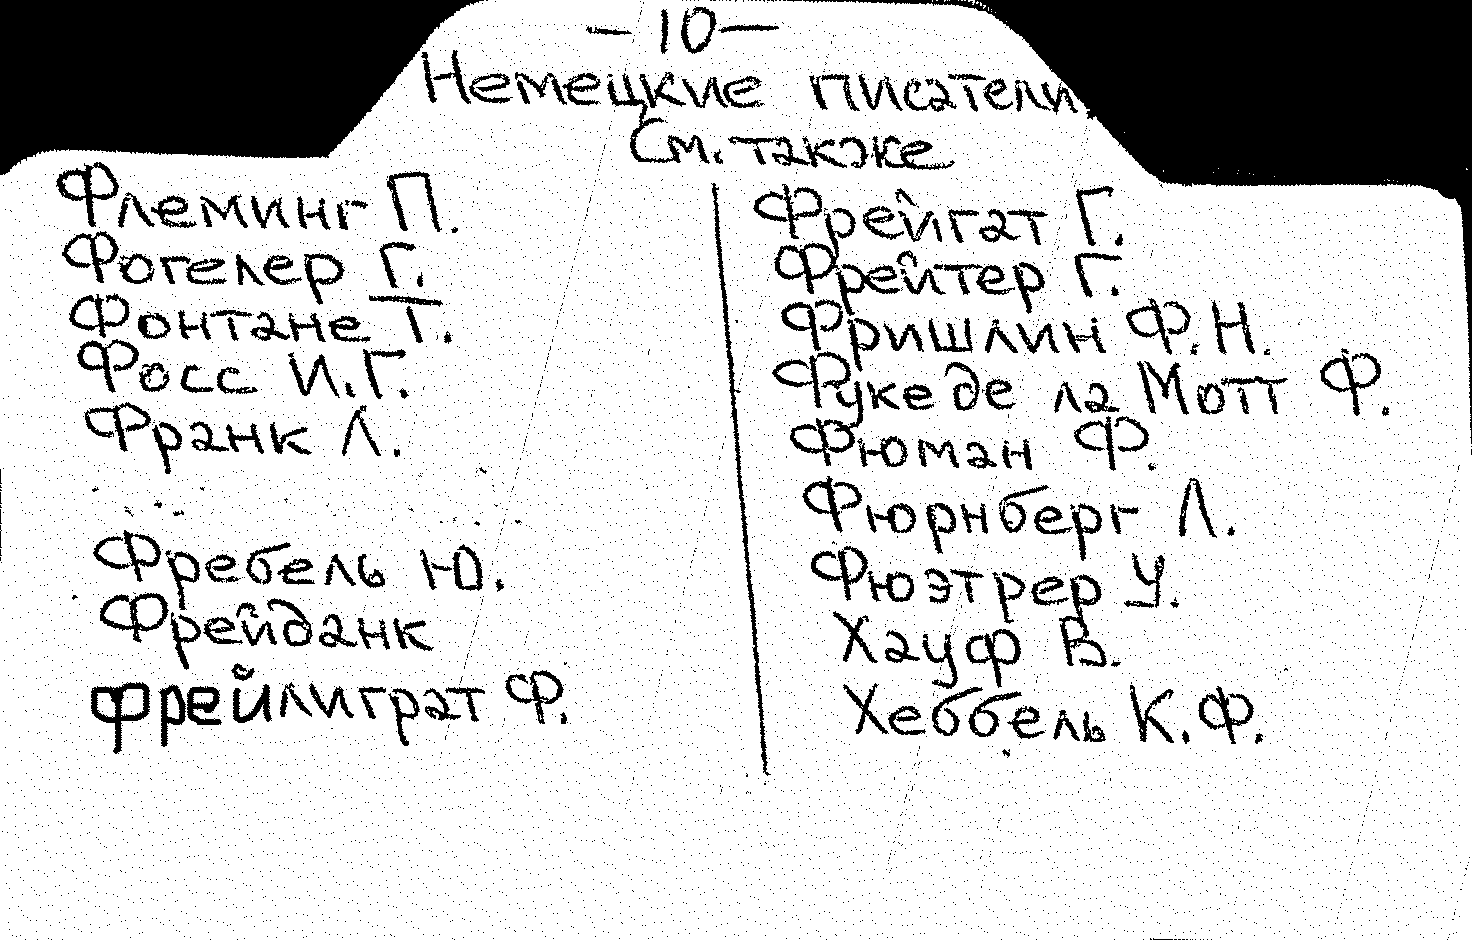 — 10 —
Немецкие писатели.
См. также
Флеминг П.
Фогелер Г.
Фонтане Т.
Фосс И.Г.
Франк Л.
Фребель Ю.
Фрейданк
Фрейлиграт Ф.
Фрейгат Г.
Фрейтер Г.
Фришлин Ф.Н.
Фуке де ла Мотт Ф.
Фюман Ф.
Фюрнберг Л.
Фюэтрер У.
Хауф В.
Хеббель К.Ф.